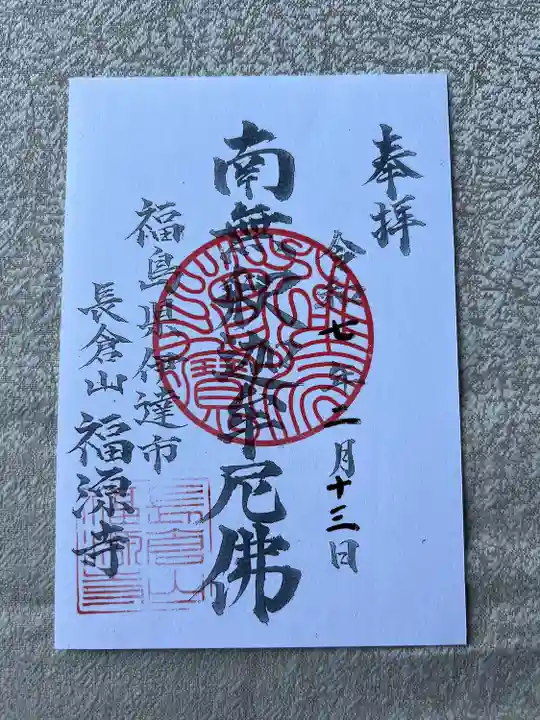 奉拝
令和七年二月十三日
南無釈迦牟尼佛
福島県伊達市
長倉山 福源寺